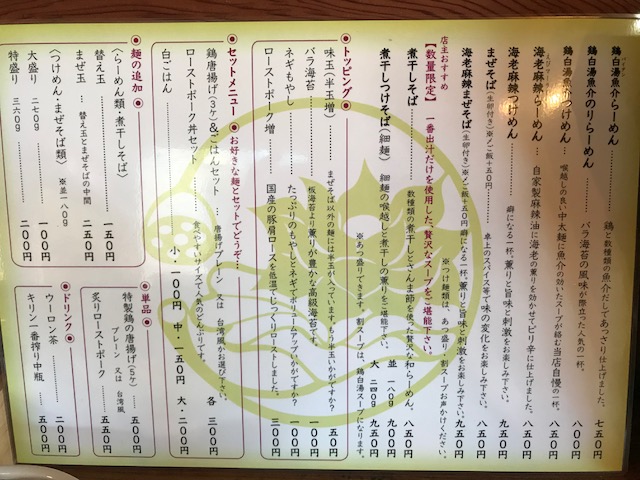 鶏白湯魚介らーめん……鶏と数種類の魚介だしであっさり仕上げました。 七五〇円
鶏白湯魚介のりらーめん……バラ海苔の風味が際立った人気の一杯。 八〇〇円
鶏白湯魚介つけめん……喉越しの良い中太麺に魚介の効いたスープが絡む当店自慢の一杯。 八五〇円
海老麻辣らーめん…自家製麻辣油に海老の薫りを効かせてピリ辛に仕上げました。 八五〇円
海老麻辣つけめん……癖になる一杯。薫りと旨味と刺激をお楽しみ下さい。 九五〇円
まぜそば（生卵付き）※〆ご飯+五〇円……卓上のスパイス等で味の変化をお楽しみ下さい。 八五〇円
海老麻辣まぜそば（生卵付き）※〆ご飯+五〇円 癖になる一杯。薫りと旨味と刺激をお楽しみ下さい。 九五〇円
※つけ麺類は、あつ盛り・割スープお声かけください。
店主おすすめ
【数量限定】 一番出汁だけを使用した、贅沢なスープをご堪能下さい。
煮干しそば……数種類の煮干しとさんま節を使った贅沢な和らーめん。 八五〇円
煮干しつけそば（細麺） 細麺の喉越しと煮干しの薫りをご堪能下さい。 並 一八〇g 九五〇円
大 二四〇g 九五〇円
※あつ盛りできます。割スープは、鶏白湯スープになります。
◉トッピング◉
味玉（半玉増）……まぜそば以外の麺には半玉が入っています もう半玉いかがですか？ 五〇円
バラ海苔……板海苔より薫りが豊かな高級海苔です。 一〇〇円
ネギもやし……たっぷりのもやしとネギでボリュームアップいかがですか？ 一〇〇円
ローストポーク増……国産の豚肩ロースを低温でじっくりローストしました。 二〇〇円
◉セットメニュー◉ お好きな麺とセットでどうぞ…
鶏唐揚げ（3ケ）&ごはんセット…唐揚げプレーン 又は 台湾風がお選び下さい。 各 三〇〇円
ローストポーク丼セット……食べやすいサイズで人気のどんぶりです。 三〇〇円
白ごはん…… 小・一〇〇円 中・一五〇円 大・二〇〇円
◉麺の追加◉
〈らーめん類・煮干しそば〉
替え玉……一五〇円
まぜ玉…替え玉とまぜそばの中間 二五〇円
〈つけめん・まぜそば類〉 ※並一八〇g
大盛り 二七〇g……一〇〇円
特盛り 三六〇g……二〇〇円
◉単品◉
特製鶏の唐揚げ（5ケ）……五〇〇円
プレーン 又は 台湾風
炙りローストポーク……五五〇円
◉ドリンク◉
ウーロン茶……二〇〇円
キリン一番搾り中瓶……五〇〇円